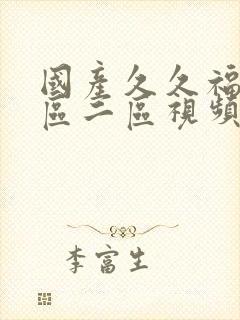 國產久久福
區二區視頻
李富生